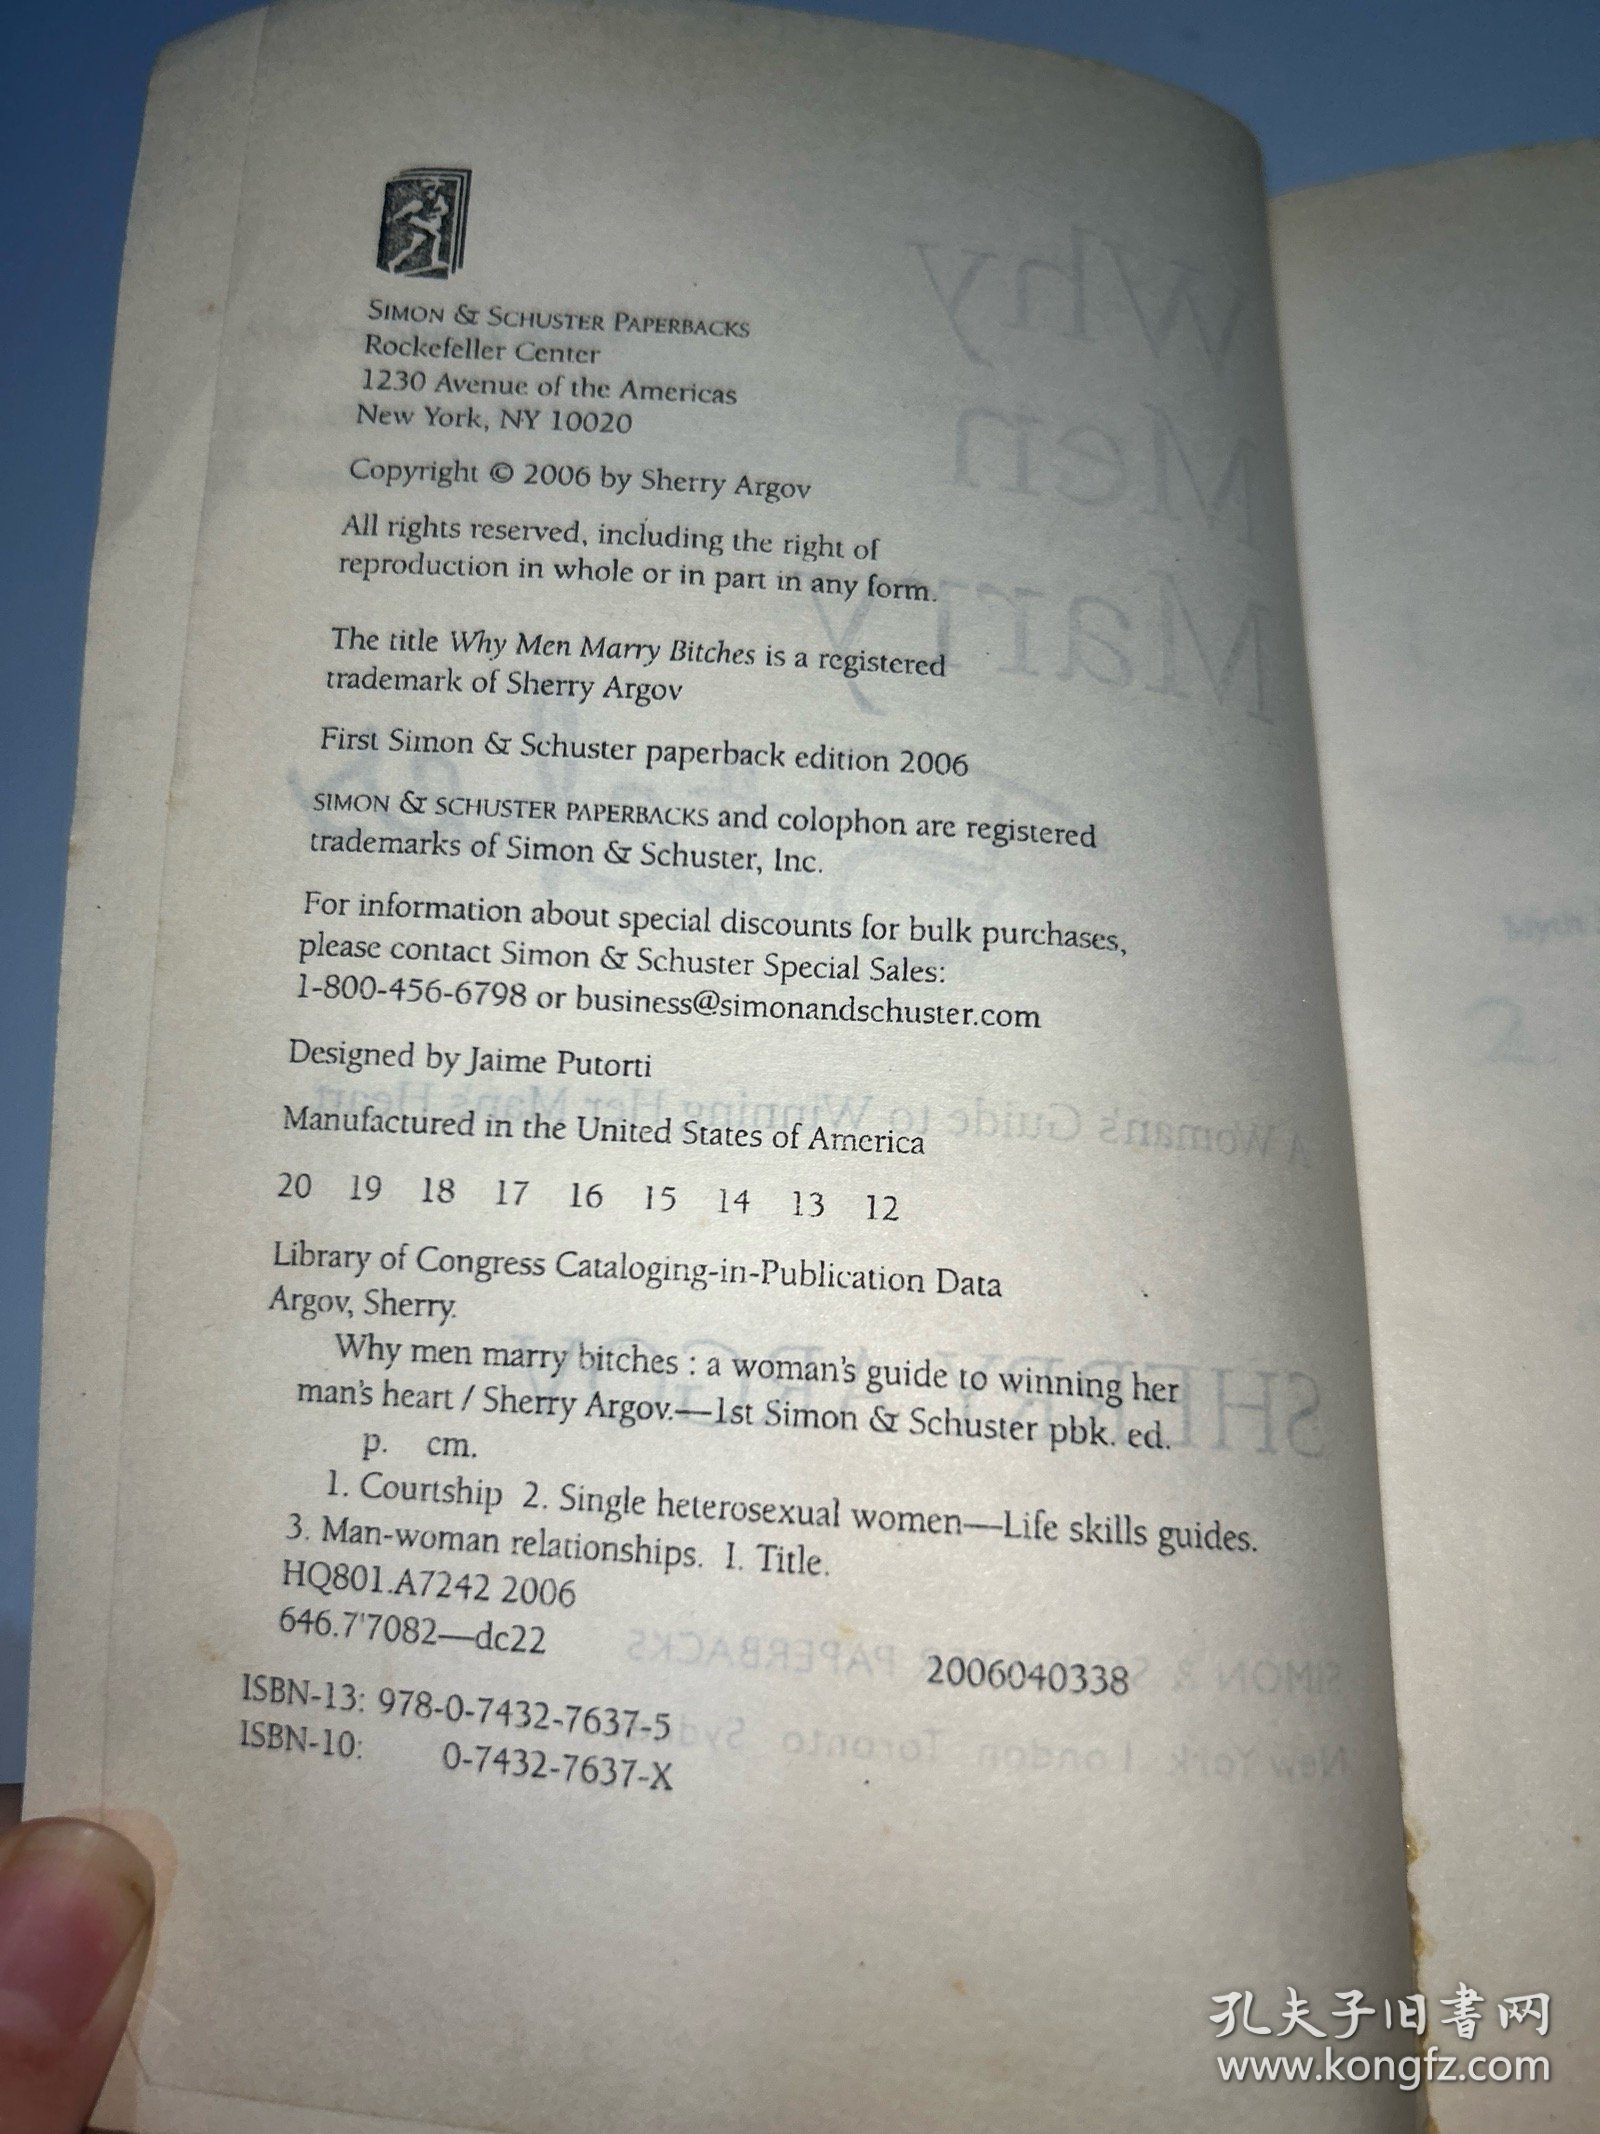 SIMON & SCHUSTER PAPERBACKS
Rockefeller Center
1230 Avenue of the Americas
New York, NY 10020
Copyright © 2006 by Sherry Argov
All rights reserved, including the right of
reproduction in whole or in part in any form.
The title Why Men Marry Bitches is a registered
trademark of Sherry Argov
First Simon & Schuster paperback edition 2006
SIMON & SCHUSTER PAPERBACKS and colophon are registered
trademarks of Simon & Schuster, Inc.
For information about special discounts for bulk purchases,
please contact Simon & Schuster Special Sales:
1-800-456-6798 or business@simonandschuster.com
Designed by Jaime Putorti
Manufactured in the United States of America
20 19 18 17 16 15 14 13 12
Library of Congress Cataloging-in-Publication Data
Argov, Sherry.
Why men marry bitches : a woman's guide to winning her
man's heart / Sherry Argov.—1st Simon & Schuster pbk. ed.
p. cm.
1. Courtship 2. Single heterosexual women—Life skills guides.
3. Man-woman relationships. I. Title.
HQ801.A7242 2006
646.7'7082—dc22
2006040338
ISBN-13: 978-0-7432-7637-5
ISBN-10: 0-7432-7637-X
Why
Men
Marry
A Woman's Guide to Winning Her Man's Heart
孔夫子旧书网
www.kongfz.com